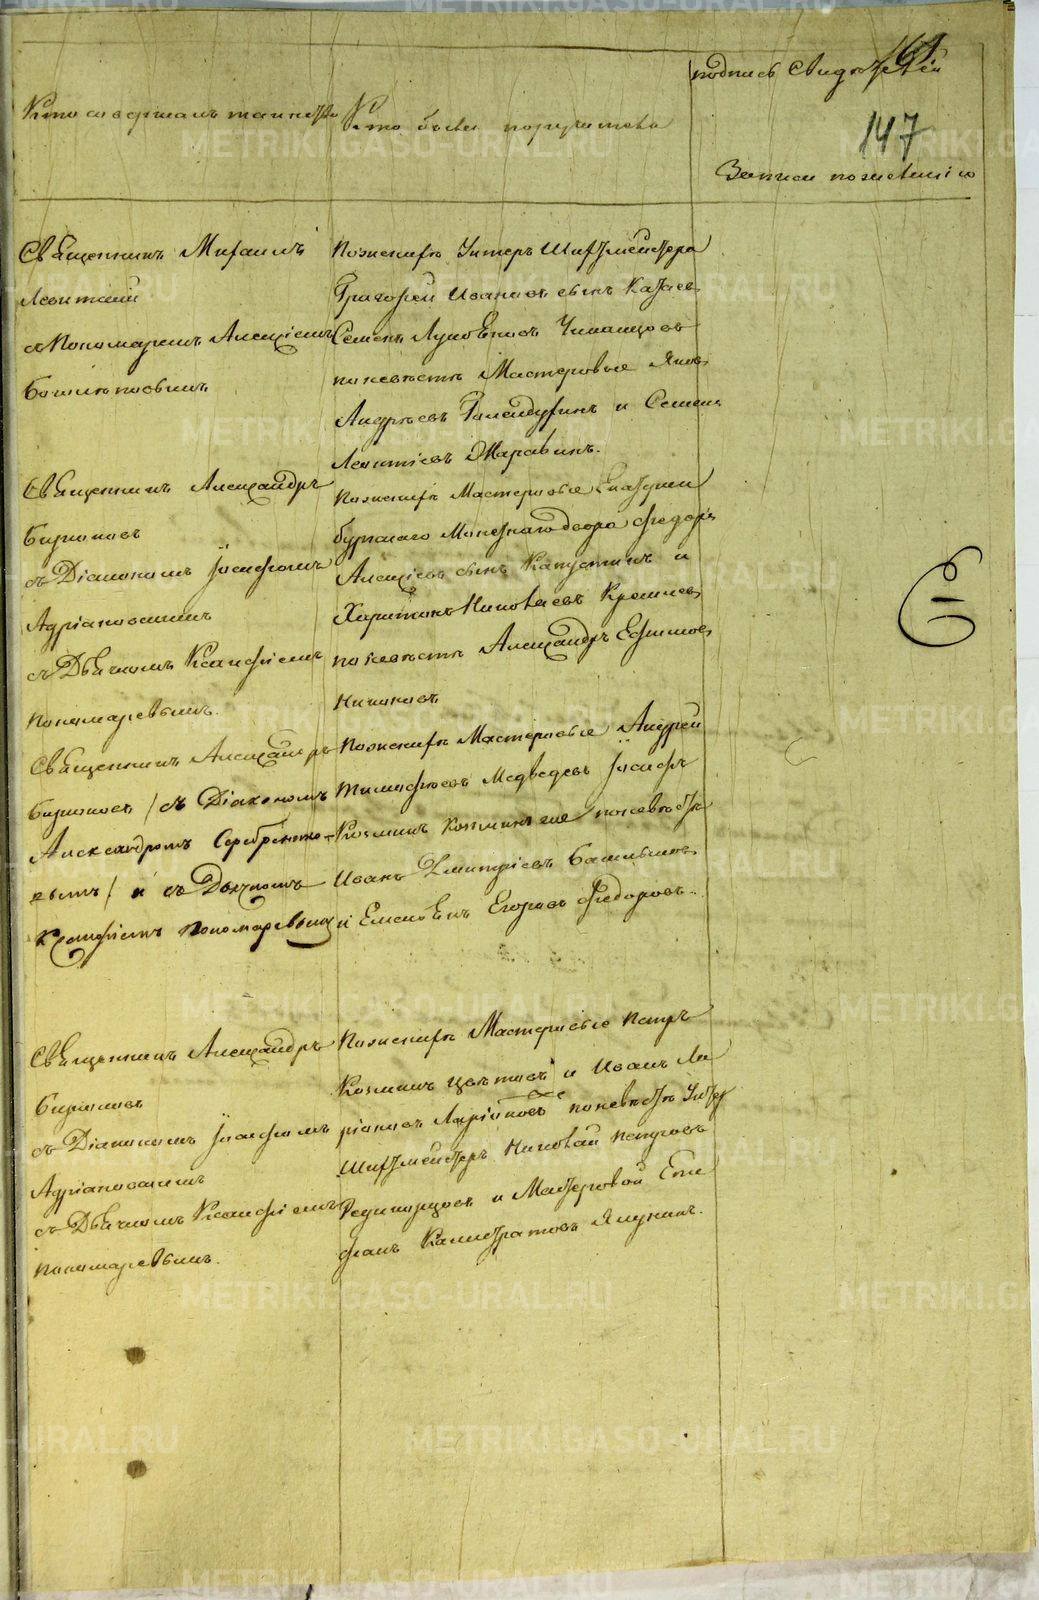 161
147
Кто совершалъ таинство
Кто были поручители
подпись свидѣтелей
Записи по желанію
Священникъ Михаилъ
Левитскій
съ Пономаремъ Алексіемъ
Поженихѣ Унтеръ Шихтмейстера
Григорей Ивановъ сынъ Казаев
Семенъ
поневѣстѣ Мастеровые Яковъ
Андреевъ и Семенъ
Леонтіевъ
Священникъ Александръ
Бирюковъ
съ Діакономъ Іосифомъ
Адріановымъ
съ Дьячкомъ Ксанфіемъ
Пономаревымъ.
Поженихѣ Мастеровые Екатерин
бургскаго Монетнаго двора Федоръ
Алексіевъ сынъ Капустинъ и
Харитонъ Николаевъ
поневѣстѣ Александръ Ефимов
Священникъ Александръ
Бирюковъ / съ Діакономъ
Александромъ Серебренико-
вымъ / и съ Дьячкомъ
Ксанфіемъ Пономаревымъ
Поженихѣ Мастеровые Андрей
Тимофеевъ Медведевъ Іосифъ
Козминъ поневѣстѣ
Иванъ Дмитріевъ
и Емельянъ Егоровъ Федоровъ.
Священникъ Александръ
Бирюковъ
съ Діакономъ Іосифомъ
Адріановымъ
съ Дьячкомъ Ксанфіемъ
Пономаревымъ.
Поженихѣ Мастеровые Петръ
Козминъ Цвѣтовъ и Иванъ Ла
ріоновъ Ларіоновъ поневѣстѣ Унтер
Шихтмейстеръ Николай Петровъ
и Мастеровой Епи
фанъ Калистратовъ Ялунинъ.
METRIKI.GASO-URAL.RU